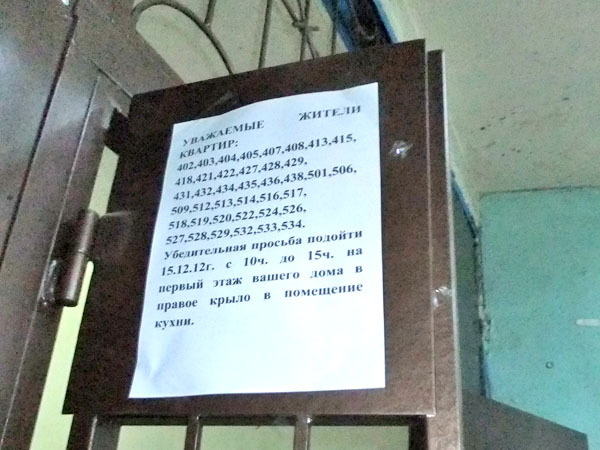 УВАЖАЕМЫЕ ЖИТЕЛИ
КВАРТИР:
402,403,404,405,407,408,413,415,
418,421,422,427,428,429,
431,432,434,435,436,438,501,506,
509,512,513,514,516,517,
518,519,520,522,524,526,
527,528,529,532,533,534.
Убедительная просьба подойти
15.12.12г. с 10ч. до 15ч. на
первый этаж вашего дома в
правое крыло в помещение
кухни.